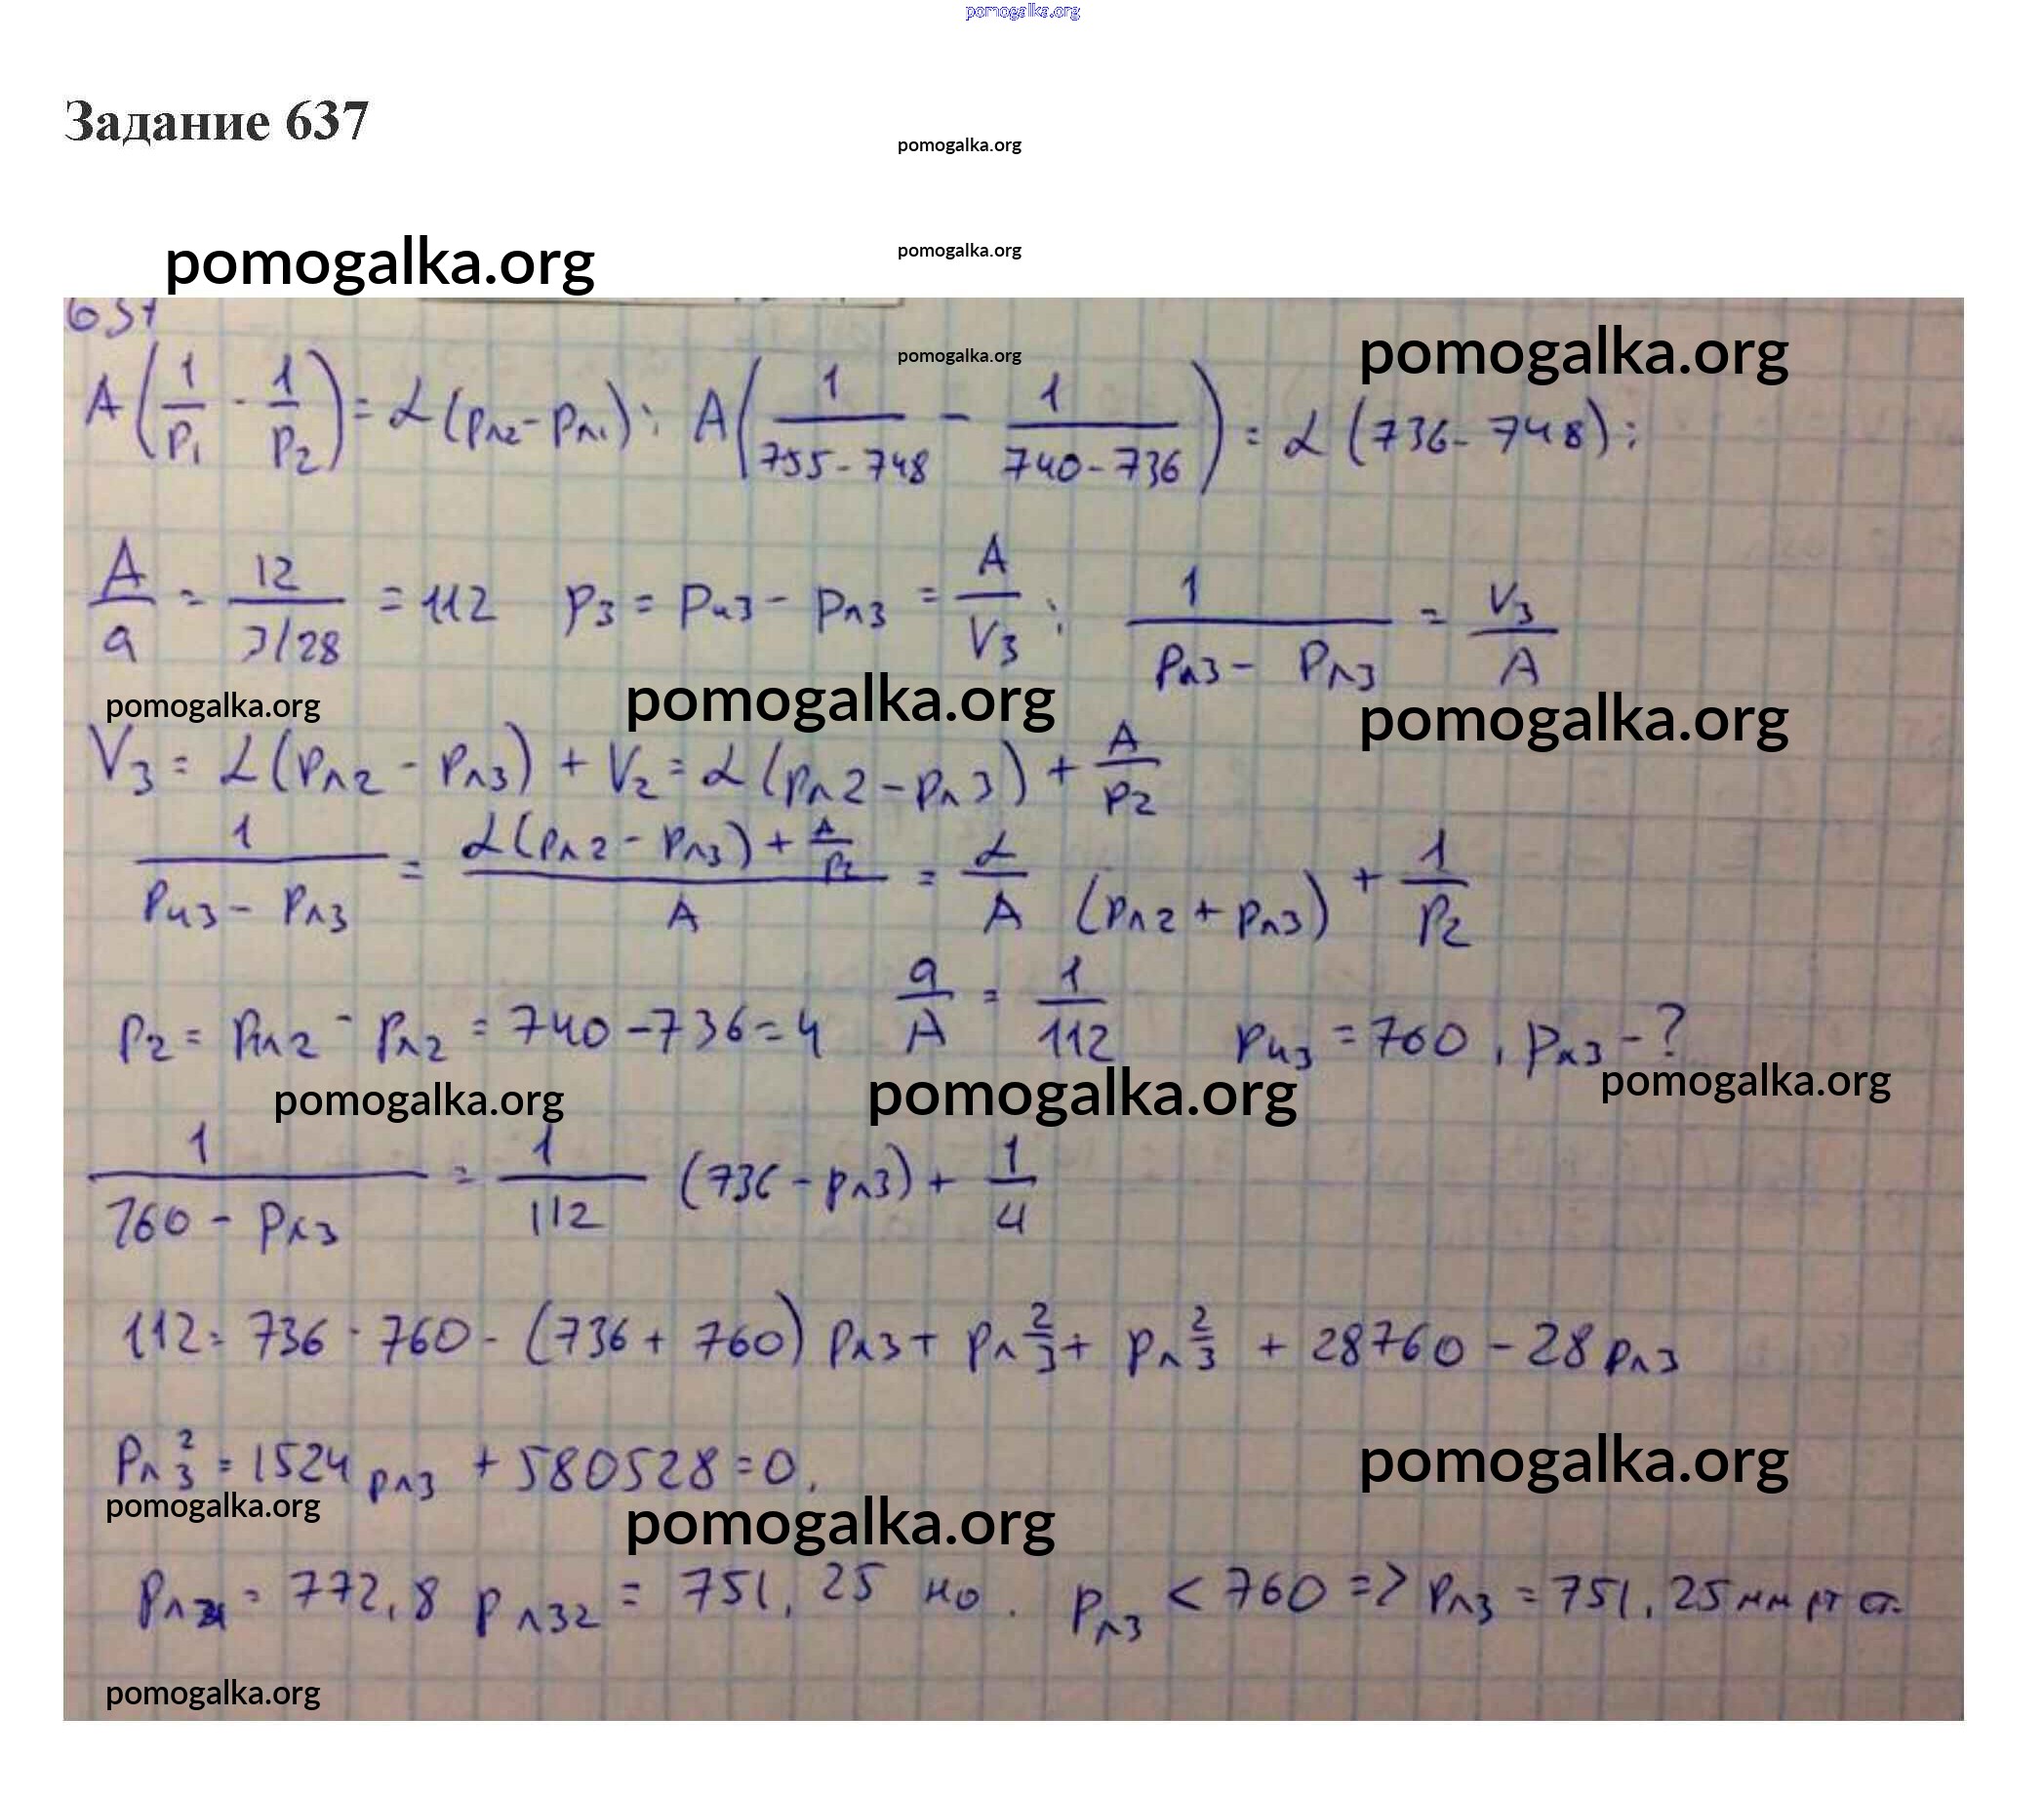 pomogalka.org
Задание 637
pomogalka.org
pomogalka.org pomogalka.org
637
pomogalka.org pomogalka.org
A(1/p₁ - 1/p₂) = α(pл2 - pл1); A(1/(755-748) - 1/(740-736)) = α(736-748);
A/a = 12/(3/28) = 112 p3 = pи3 - pл3 = A/V3; 1/(pл3 - pл3) = V3/A
pomogalka.org pomogalka.org pomogalka.org
V3 = α(pл2 - pл3) + V2 = α(pл2 - pл3) + A/p2
1/(pи3 - pл3) = (α(pл2 - pл3) + A/p2)/A = α/A (pл2 + pл3) + 1/p2
p2 = pл2 - pл2 = 740-736=4 a/A = 1/112 pи3 = 760, pл3 - ?
pomogalka.org pomogalka.org pomogalka.org
1/(760 - pл3) = 1/112 (736 - pл3) + 1/4
112 = 736 · 760 - (736 + 760) pл3 + pл 2/3 + pл 2/3 + 28760 - 28 pл3
pл3² = 1524 pл3 + 580528 = 0.
pomogalka.org pomogalka.org pomogalka.org
pл31 = 772,8 pл32 = 751,25 но. pл3 < 760 => pл3 = 751,25 мм рт ст.
pomogalka.org